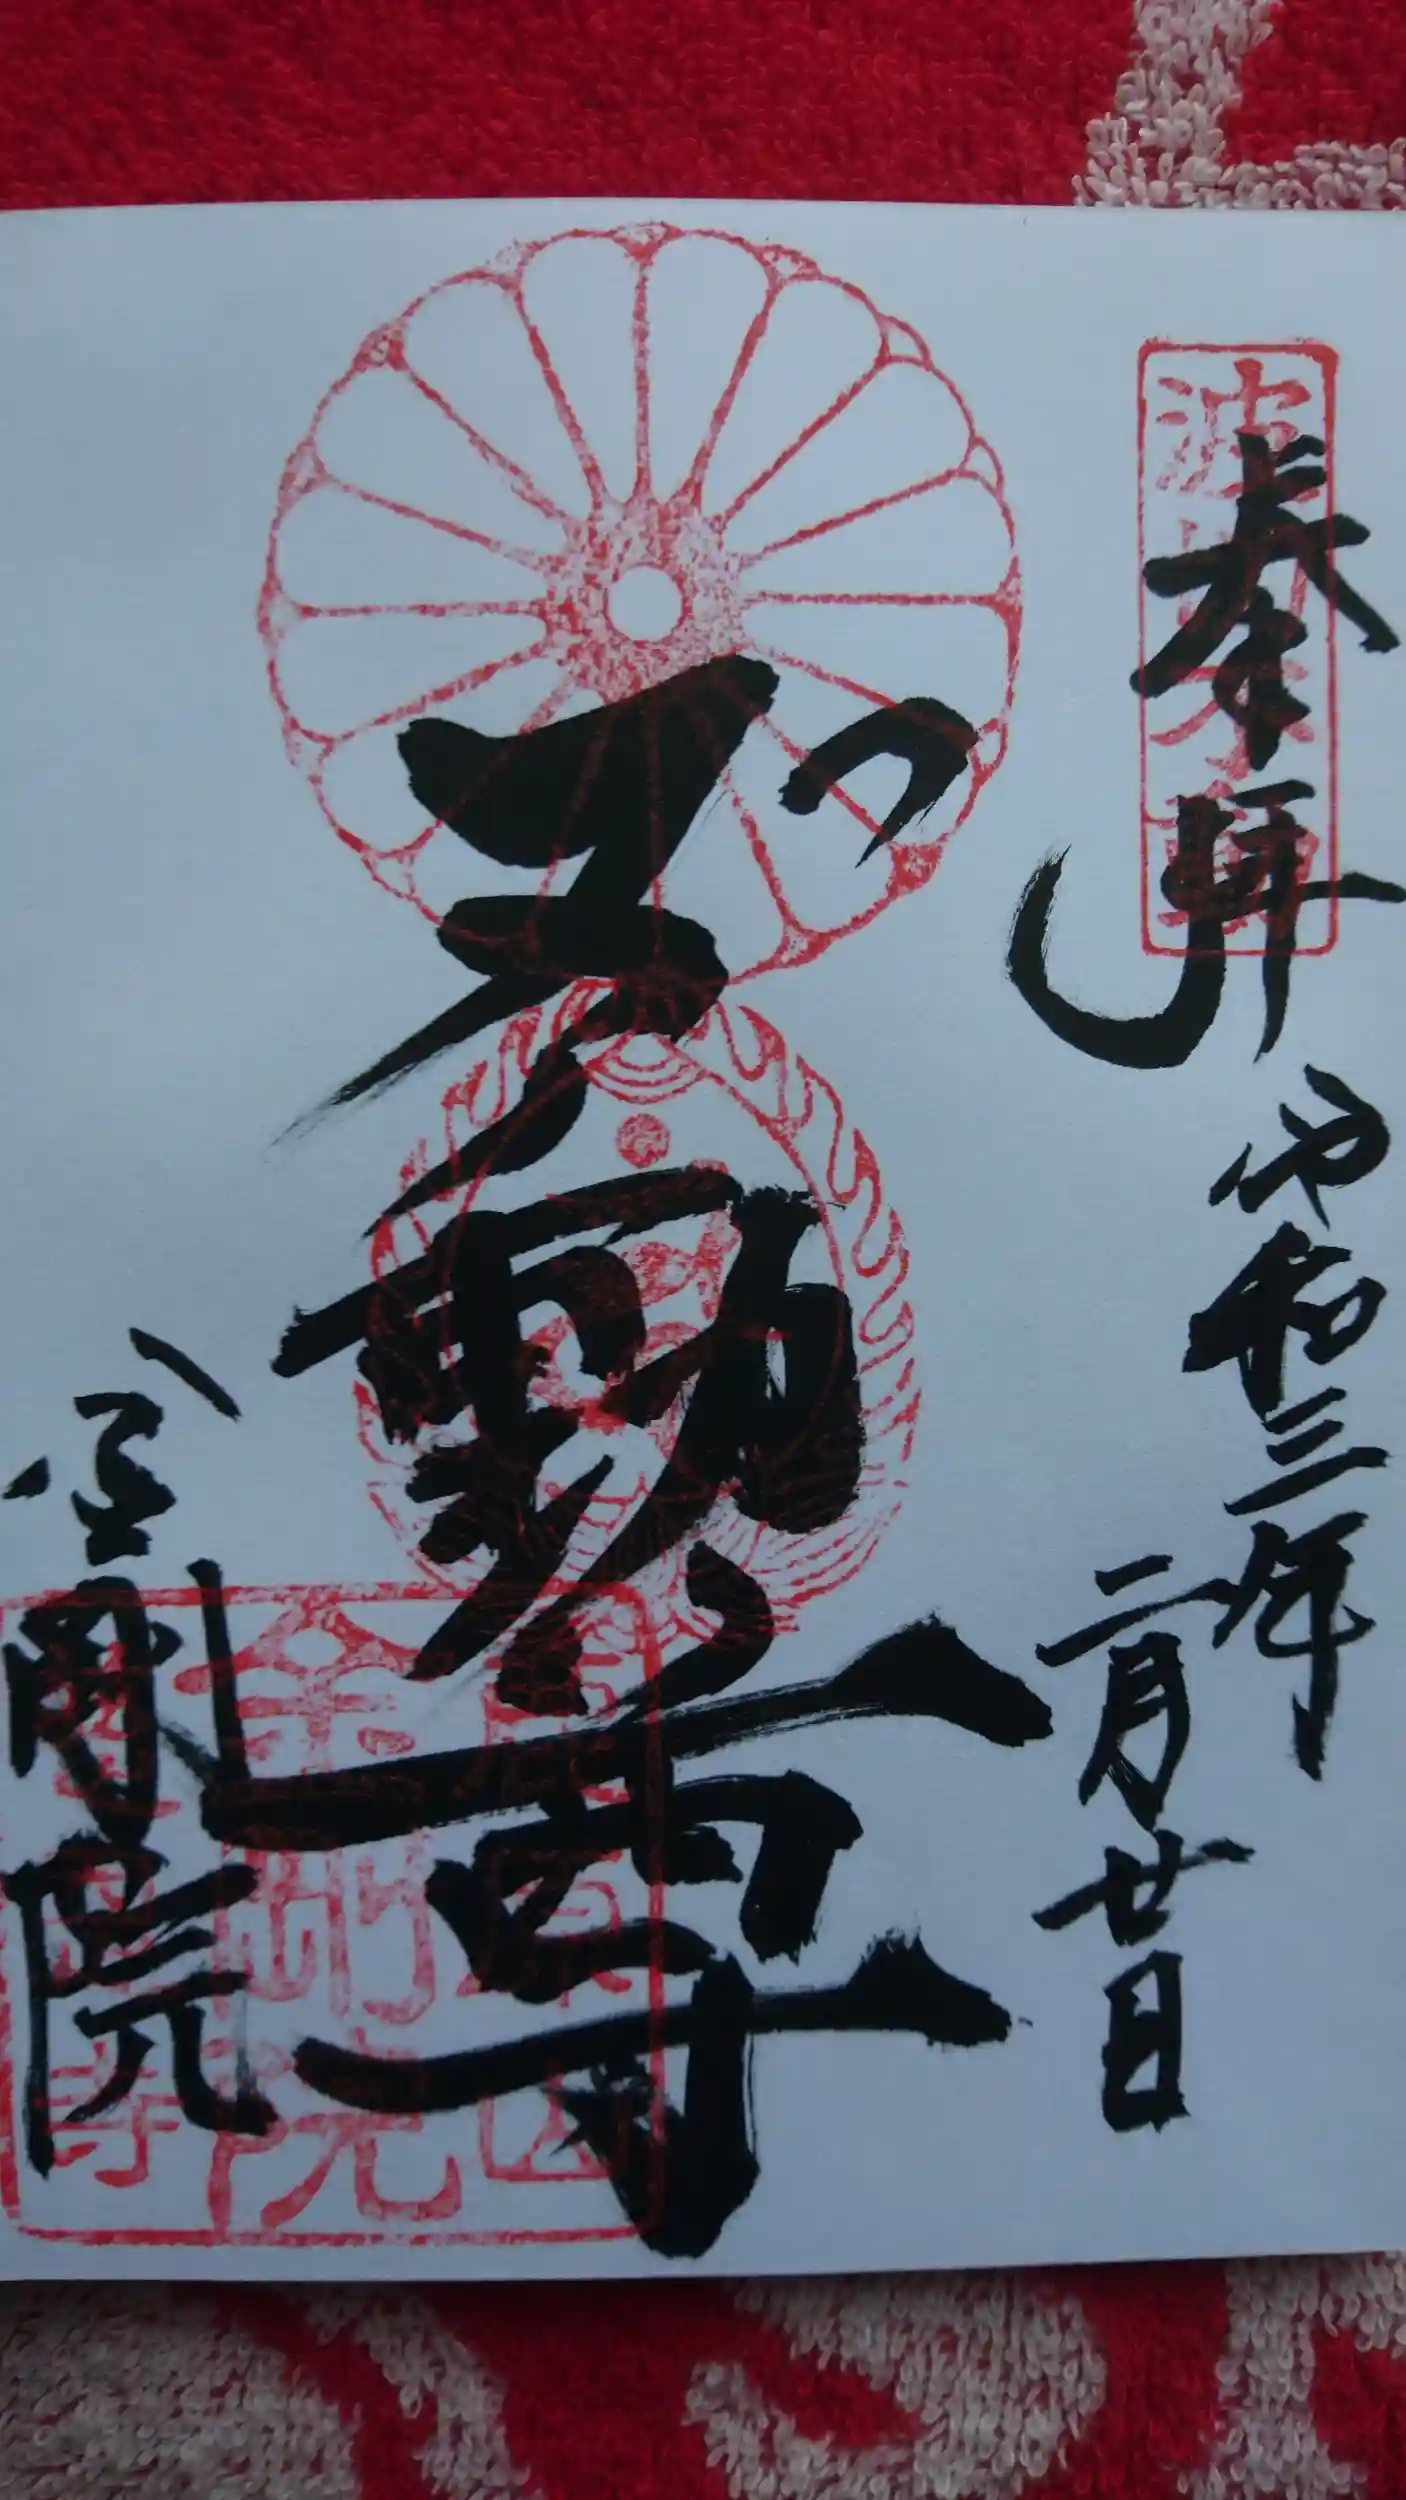 奉拝
令和三年
二月廿日
不動尊
金剛院
金剛院